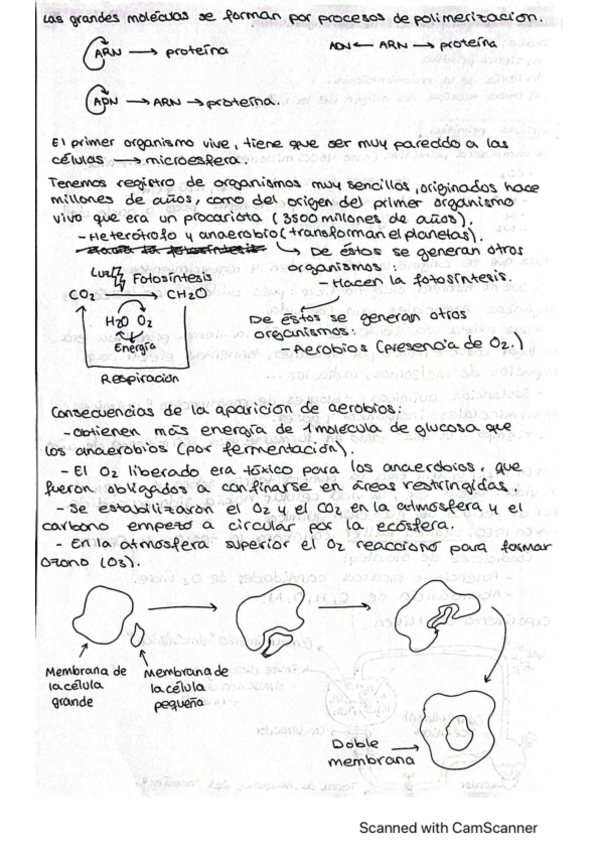 Las grandes moléculas se forman por procesos de polimerización.
ARN → proteína
ADN ← ARN → proteína
ADN → ARN → proteína.
El primer organismo vive, tiene que ser muy parecido a las
células → microesfera.
Tenemos registro de organismos muy sencillos, originados hace
millones de años, como del origen del primer organismo
vivo que era un procariota (3500 millones de años).
- Heterótrofo y anaerobio (transforman el planetas).
De éstos se generan otros
organismos:
- Hacen la fotosíntesis.
Luz
Fotosíntesis
CO2 → CH2O
H2O O2
Energía
Respiración
De éstos se generan otros
organismos:
- Aerobios (presencia de O2.)
Consecuencias de la aparición de aerobios:
- Obtienen más energía de 1 molécula de glucosa que
los anaerobios (por fermentación).
- El O2 liberado era tóxico para los anaerobios, que
fueron obligados a confinarse en áreas restringidas.
- Se estabilizaron el O2 y el CO2 en la atmósfera y el
carbono empezó a circular por la ecósfera.
- En la atmósfera superior el O2 reaccionó para formar
Ozono (O3).
Membrana de
la célula
grande
Membrana de
la célula
pequeña
Doble
membrana
Scanned with CamScanner